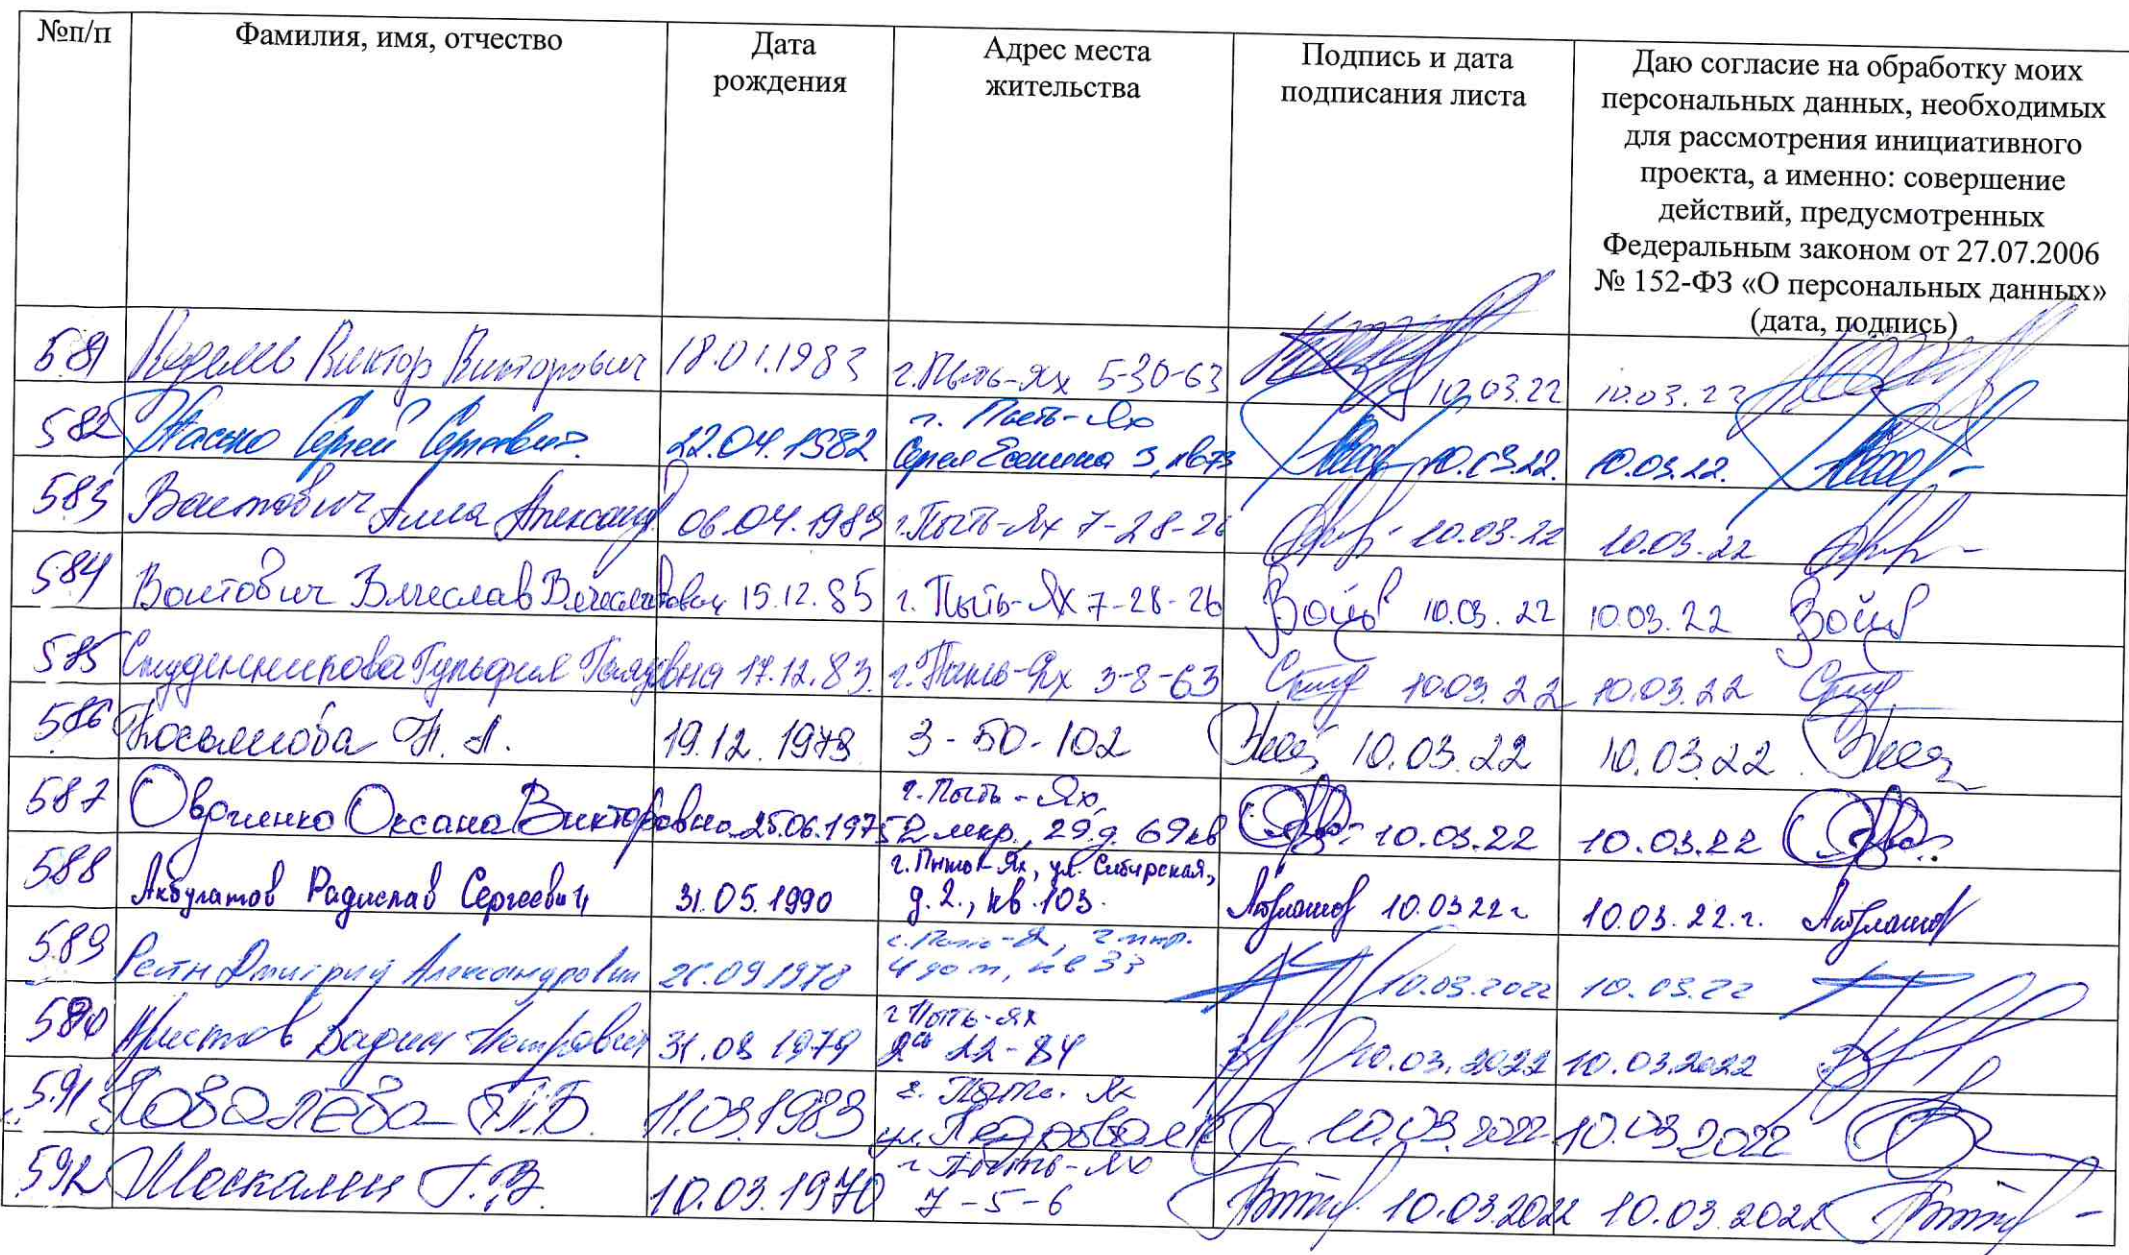 №п/п
Фамилия, имя, отчество
Дата
рождения
Адрес места
жительства
Подпись и дата
подписания листа
Даю согласие на обработку моих
персональных данных, необходимых
для рассмотрения инициативного
проекта, а именно: совершение
действий, предусмотренных
Федеральным законом от 27.07.2006
№ 152-ФЗ «О персональных данных»
(дата, подпись)
581
Виктор Викторович
18.01.1983
г.Пыть-Ях 5-30-63
10.03.22
10.03.22
582
Сергей Сергеевич
22.04.1982
г. Пыть-Ях
Сергея Есенина 3, кв73
10.03.22.
10.03.22.
583
Войтович Алла Александ
06.04.1989
г.Пыть-Ях 7-28-26
10.03.22
10.03.22
584
Войтович Вячеслав Вячеславович
15.12.85
г. Пыть-Ях 7-28-26
10.03.22
10.03.22
585
Студенникова Гульфия
17.12.83.
г.Пыть-Ях 3-8-63
10.03.22
10.03.22
586
19.12.1973
3-50-102
10.03.22
10.03.22
587
Овдиенко Оксана Викторовна
25.06.1975
г.Пыть-Ях,
2 мкр., 29д. 69кв
10.03.22
10.03.22
588
Акбулатов Радислав Сергеевич
31.05.1990
г.Пыть-Ях, ул. Сибирская,
д.2., кв.103.
10.03 22г
10.03.22.г.
589
Рейн Дмитрий Александрович
26.09 1978
г.Пыть-Я, 2 мкр.
4 дом, кв 33
10.03.2022
10.03.22
590
Вадим Петрович
31.08 1979
г Пыть-Ях
22-84
10.03.2022
10.03.2022
591
Ковалёва
11.03.1983
г. Пыть-Ях
10.03.2022
10.03.2022
592
Москалец Г.В.
10.03.1970
г Пыть-Ях
7-5-6
10.03.2022
10.03.2022